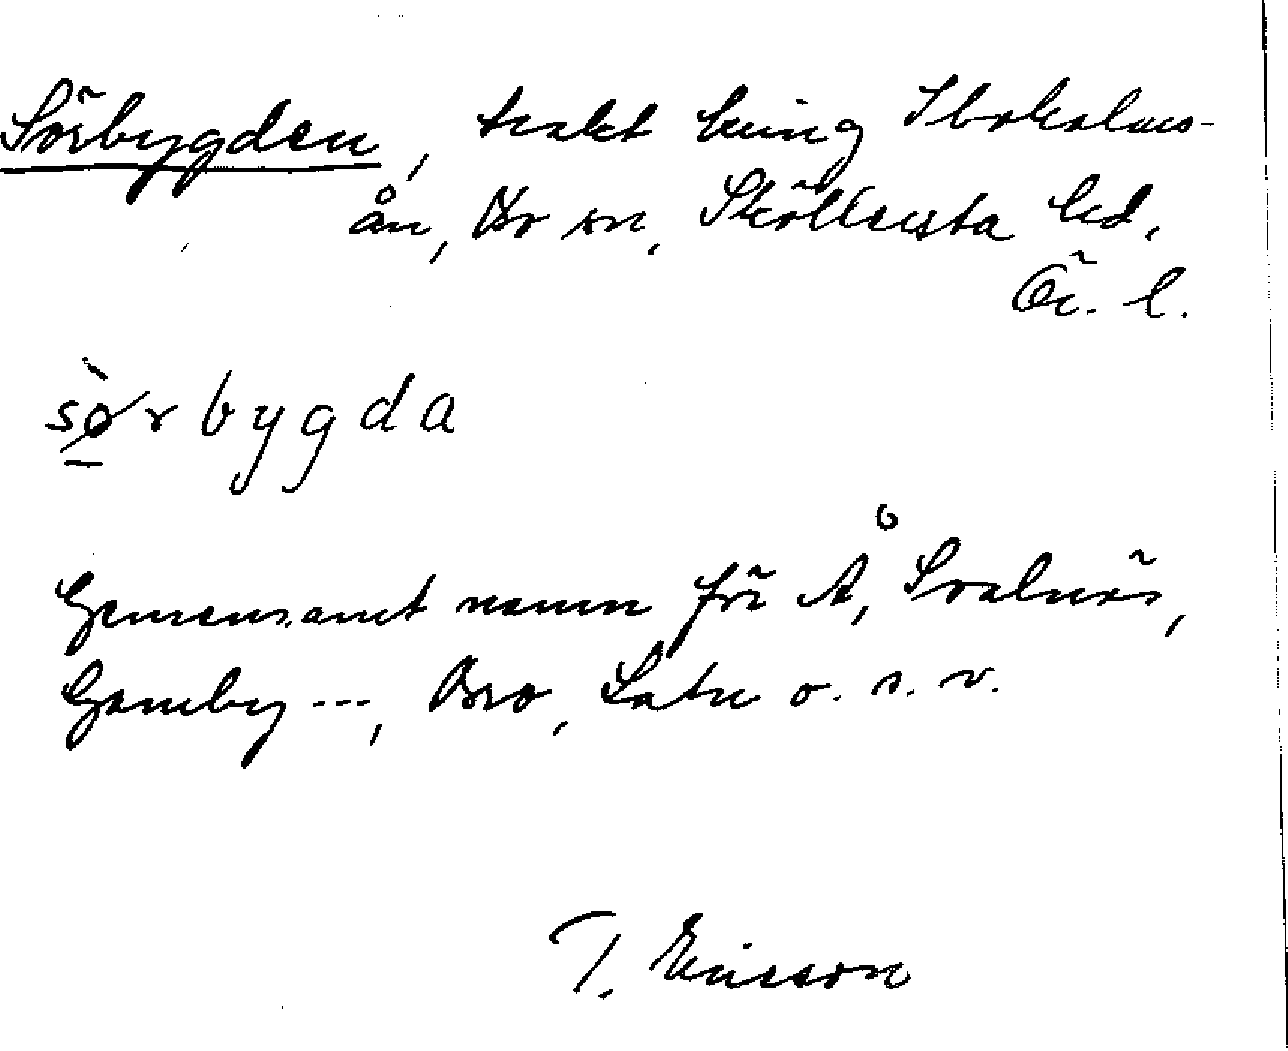 Sörbygden, trakt kring Iboholms-
ån, Kr sn, Sköllersta hd,
Ör. l.
sørbygda
Gemensamt namn för Å, Svalnäs,
Gamby ---, Bro, Säter o. s. v.
T. Ericsson